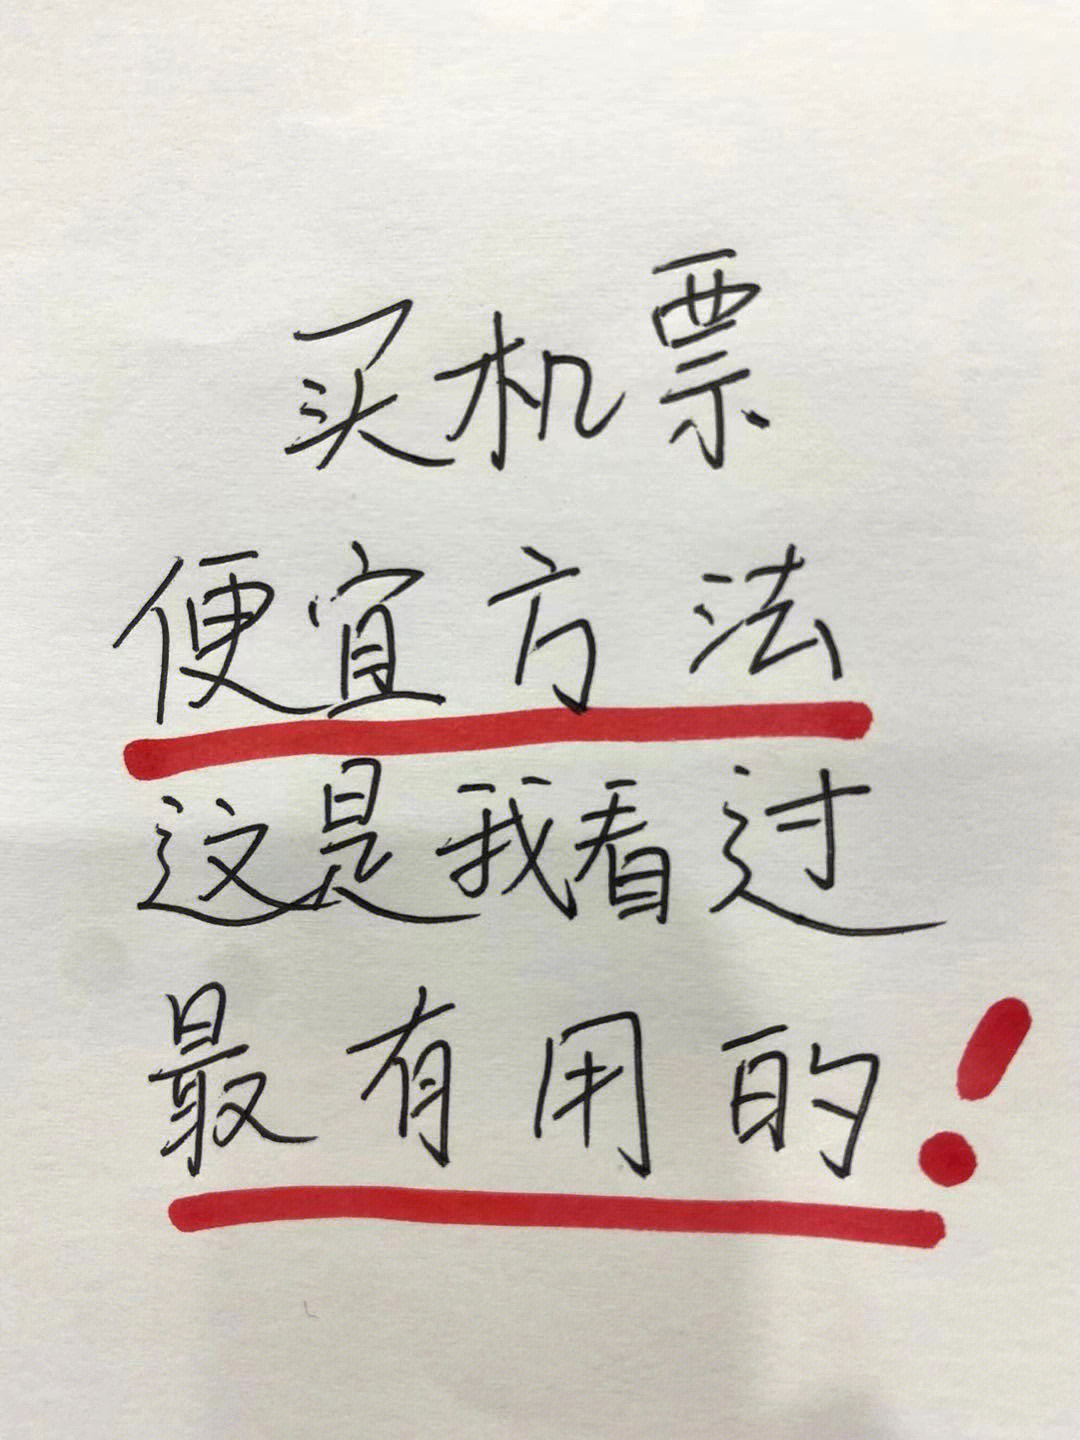 买机票
便宜方法
这是我看过
最有用的!